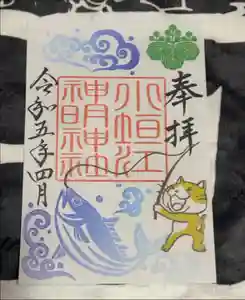 奉拝
小垣江
神明神社
令和五年四月